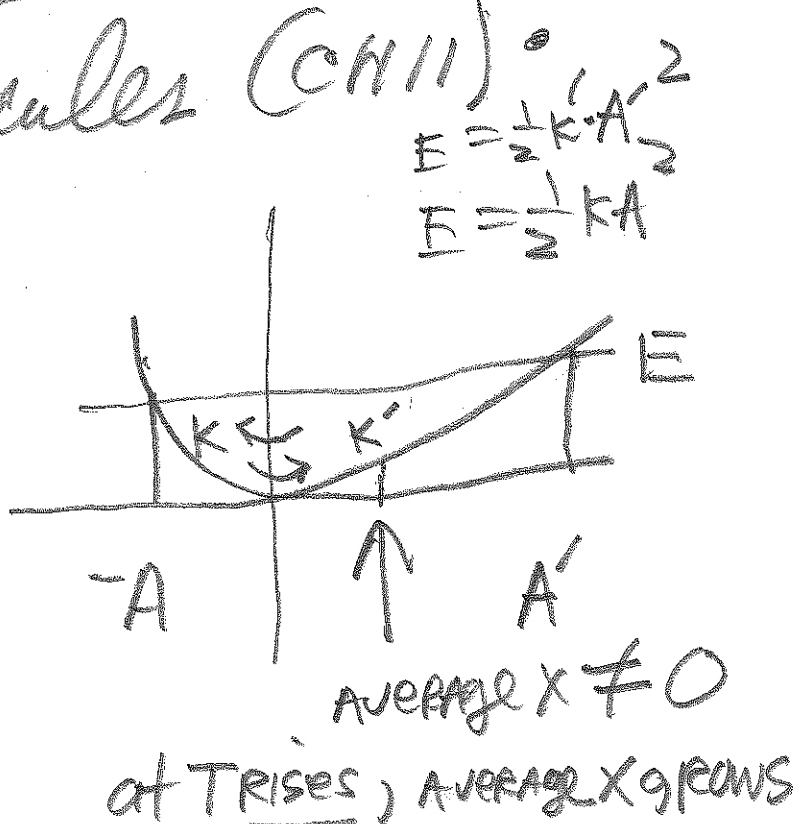 cules (CH11).
E = ½ K'·A'²
E = ½ KA²
E
K K'
-A A'
AVERAGE X ≠ 0
at T RISES, AVERAGE X GROWS